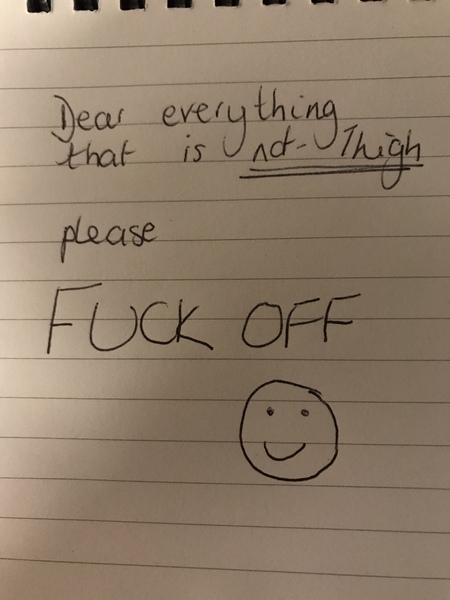 Dear everything
that is not-Thigh
please
FUCK OFF